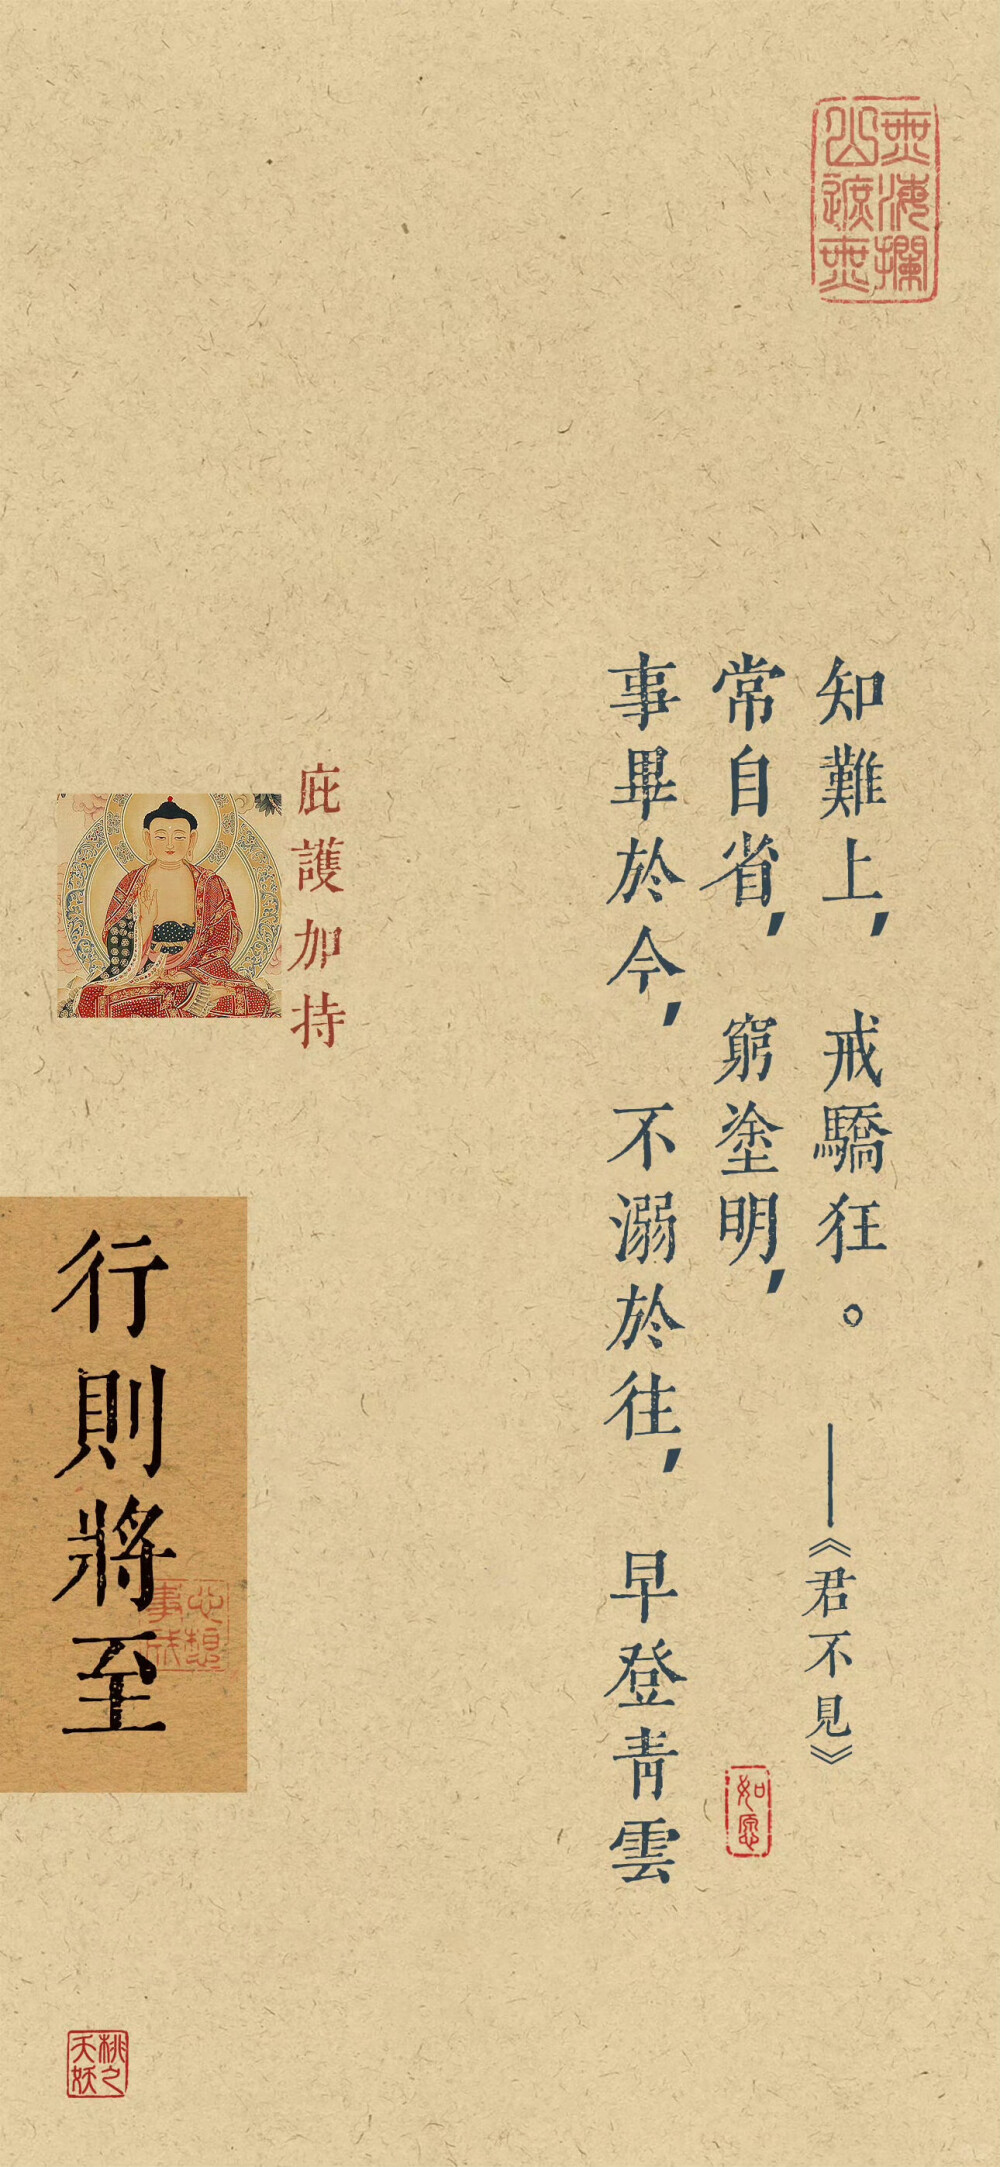 無海攔
山遮無
知難上，戒驕狂。——《君不見》
常自省，窮塗明，
事畢於今，不溺於往，早登青雲
如愿
庇護加持
行則將至
心想
事成
桃之
夭妖